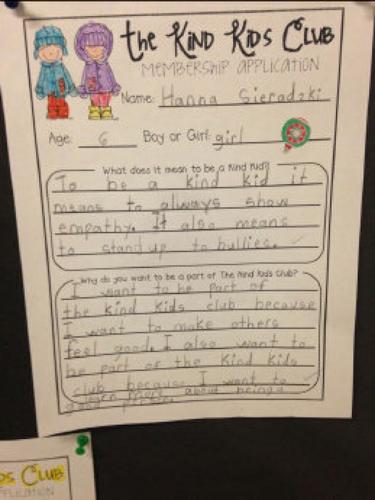 the Kind Kids Club
MEMBERSHIP APPLICATION
Name: Hanna Sieradzki
Age: 6 Boy or Girl: girl
What does it mean to be a Kind Kid?
To be a kind kid it
means to always show
empathy. It also means
to stand up to bullies.
Why do you want to be a part of The Kind Kids Club?
I want to be part of
the kind kids club because
I want to make others
feel good. I also want to
be part or the Kind Kids
club because I want to
learn more about being a
good person.
DS CLUB
PPLICATION